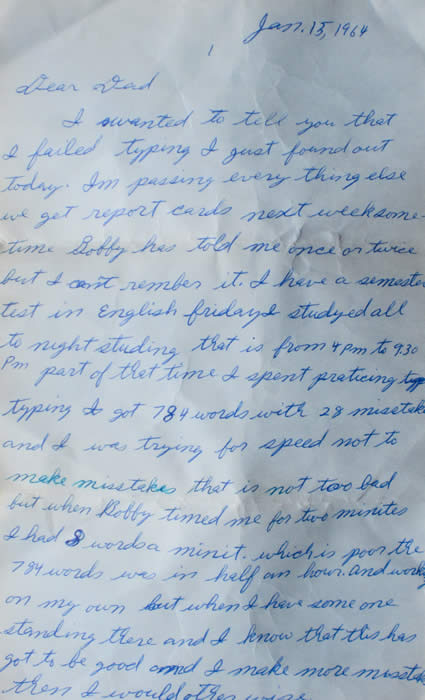 Jan. 15, 1964
1
Dear Dad
I wanted to tell you that
I failed typing I just found out
today. Im passing every thing else
we get report cards next week some-
time Bobby has told me once or twice
but I can't rember it. I have a semester
test in English friday I studyed all
to night studing that is from 4 pm to 9:30
Pm part of that time I spent praticing type
typing I got 784 words with 28 misstake
and I was trying for speed not to
make misstakes that is not too bad
but when Bobby timed me for two minites
I had 8 words a minit. which is poor the
784 words was in half an hour. and work
on my own but when I have some one
standing there and I know that this has
got to be good and I make more misstak
then I would other wise